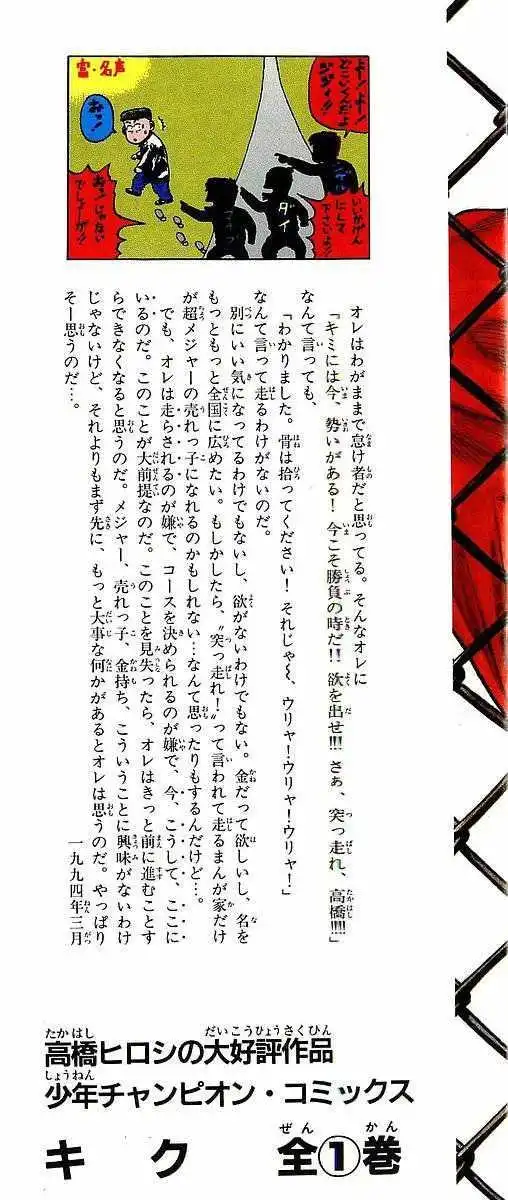 富・名声
よー!よー!
どこいくんだよ
ジジィ!!
いいかげん
にして
下さいよッ!
おッ!
おッ!じゃない
でしょーが!!
ダイ
オレはわがままで怠け者だと思ってる。そんなオレに
「キミには今、勢いがある!今こそ勝負の時だ!!欲を出せ!!!さぁ、突っ走れ、高橋!!!!」
なんて言っても、
「わかりました。骨は拾ってください!それじゃ〜、ウリャ!ウリャ!ウリャ!」
なんて言って走るわけがないのだ。
別にいい気になってるわけでもないし、欲がないわけでもない。金だって欲しいし、名を
もっともっと全国に広めたい。もしかしたら、〝突っ走れ!〟って言われて走るまんが家だけ
が超メジャーの売れっ子になれるのかもしれない…なんて思ったりもするんだけど…。
でも、オレは走らされるのが嫌で、コースを決められるのが嫌で、今、こうして、ここに
いるのだ。このことが大前提なのだ。このことを見失ったら、オレはきっと前に進むことす
らできなくなると思うのだ。メジャー、売れっ子、金持ち、こういうことに興味がないわけ
じゃないけど、それよりもまず先に、もっと大事な何かがあるとオレは思うのだ。やっぱり
そー思うのだ…。
一九九四年三月
高橋ヒロシの大好評作品
少年チャンピオン・コミックス
キク 全①巻